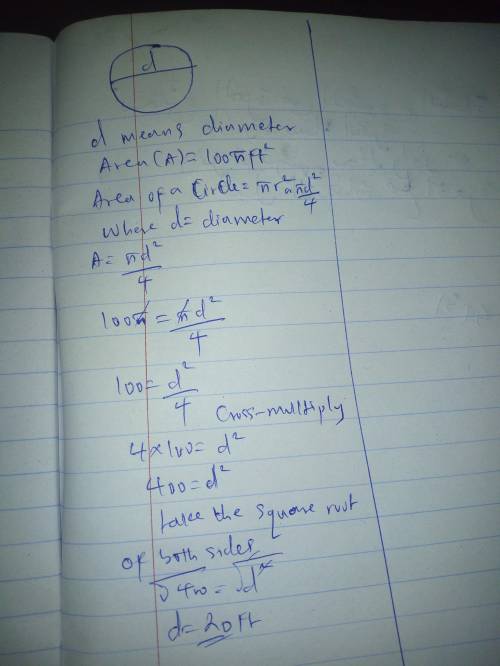 d
d means diameter
Area (A) = 100πft²
Area of a Circle = πr² or πd²/4
where d = diameter
A = πd²/4
100π = πd²/4
100 = d²/4
Cross-multiply
4×100 = d²
400 = d²
take the square root
of both sides
√400 = √d²
d = 20ft